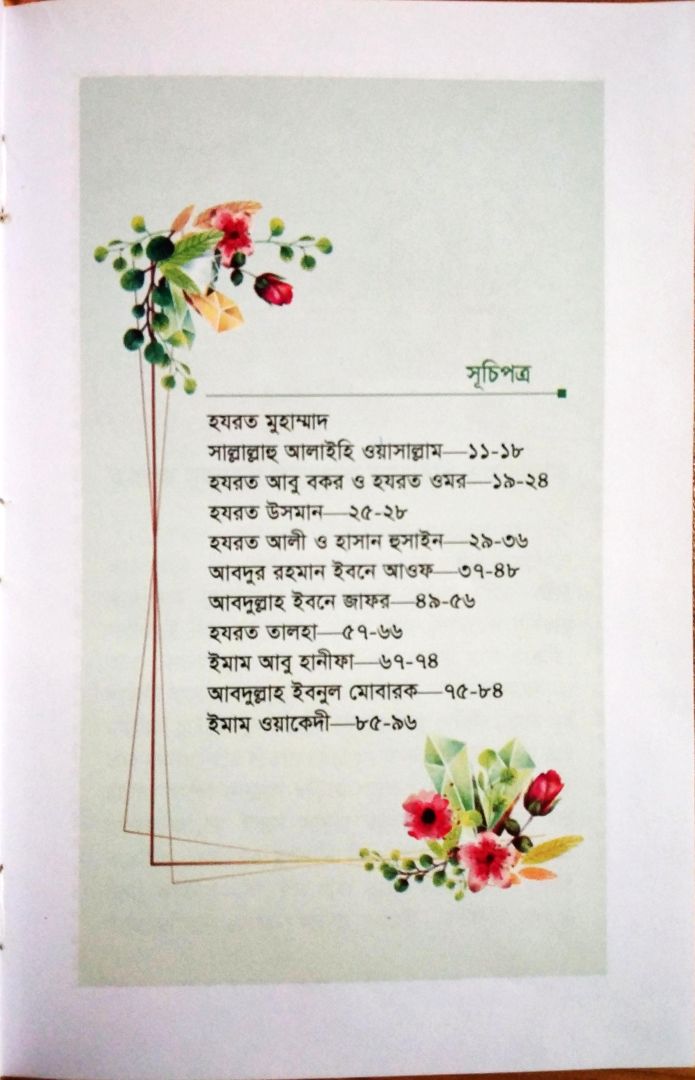 সূচিপত্র
হযরত মুহাম্মাদ
সাল্লাল্লাহু আলাইহি ওয়াসাল্লাম—১১-১৮
হযরত আবু বকর ও হযরত ওমর—১৯-২৪
হযরত উসমান—২৫-২৮
হযরত আলী ও হাসান হুসাইন—২৯-৩৬
আবদুর রহমান ইবনে আওফ—৩৭-৪৮
আবদুল্লাহ ইবনে জাফর—৪৯-৫৬
হযরত তালহা—৫৭-৬৬
ইমাম আবু হানীফা—৬৭-৭৪
আবদুল্লাহ ইবনুল মোবারক—৭৫-৮৪
ইমাম ওয়াকেদী—৮৫-৯৬